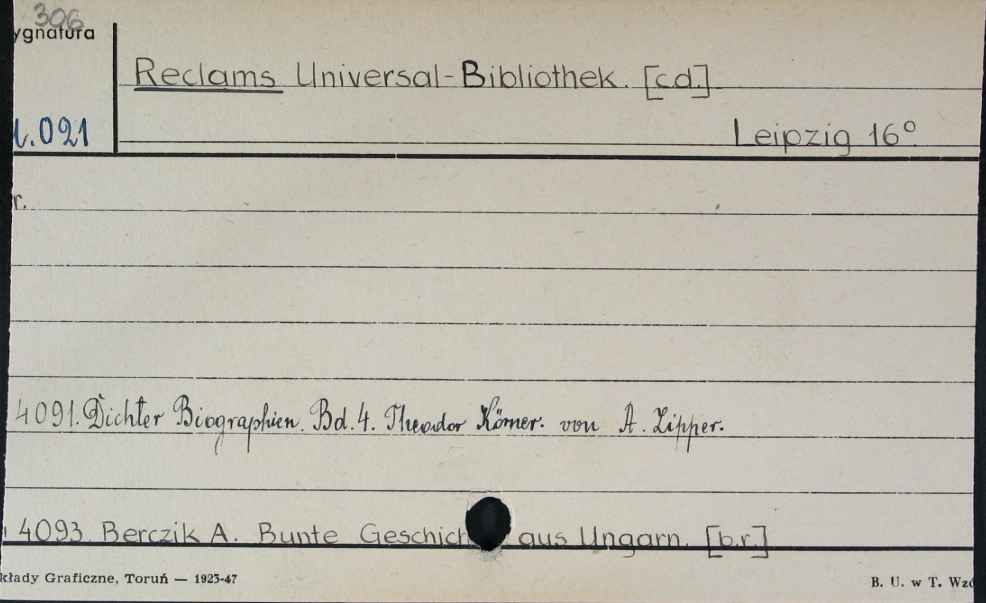 306
ygnatura
Reclams Universal-Bibliothek. [c.d.]
.021
Leipzig 16°
r.
4091. Dichter Biographien. Bd. 4. Theodor Körner. von A. Zipper.
4093 Berczik A. Bunte Geschich aus Ungarn. [b.r.]
kłady Graficzne, Toruń — 1923-47
B. U. w T. Wzó